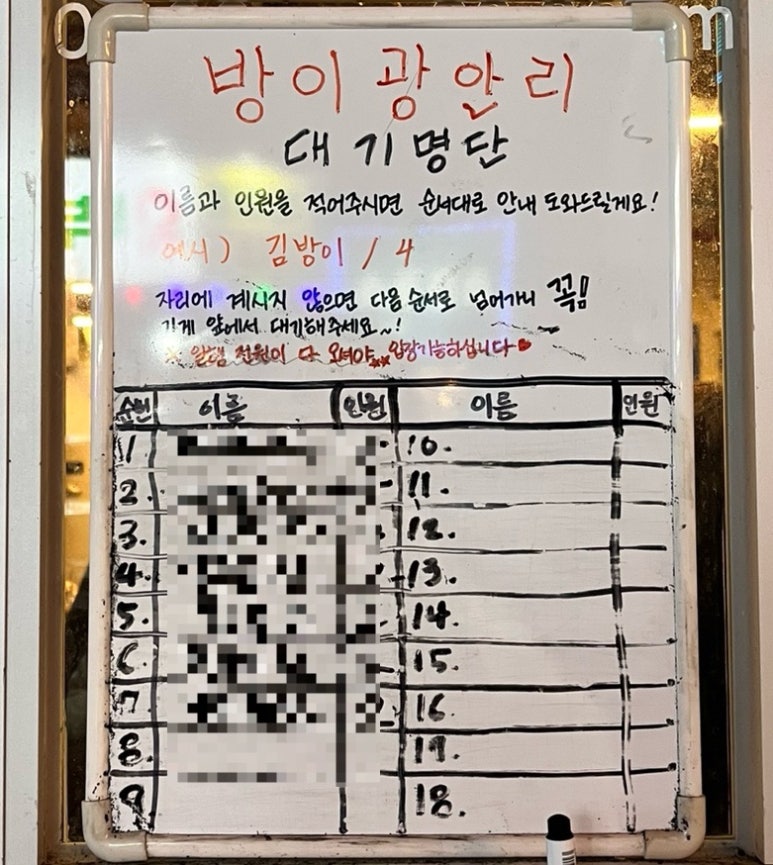 방이 광안리
대기명단
이름과 인원을 적어주시면 순서대로 안내 도와드릴게요!
예시) 김방이 / 4
자리에 계시지 않으면 다음 순서로 넘어가니 꼭!
가게 앞에서 대기해주세요~!
※ 일행 전원이 다 오셔야 입장가능하십니다♥
순번 이름 인원 이름 인원
1 10.
2. 11.
3. 12.
4. 13.
5. 14.
6. 15.
7 16.
8. 17.
9 18.